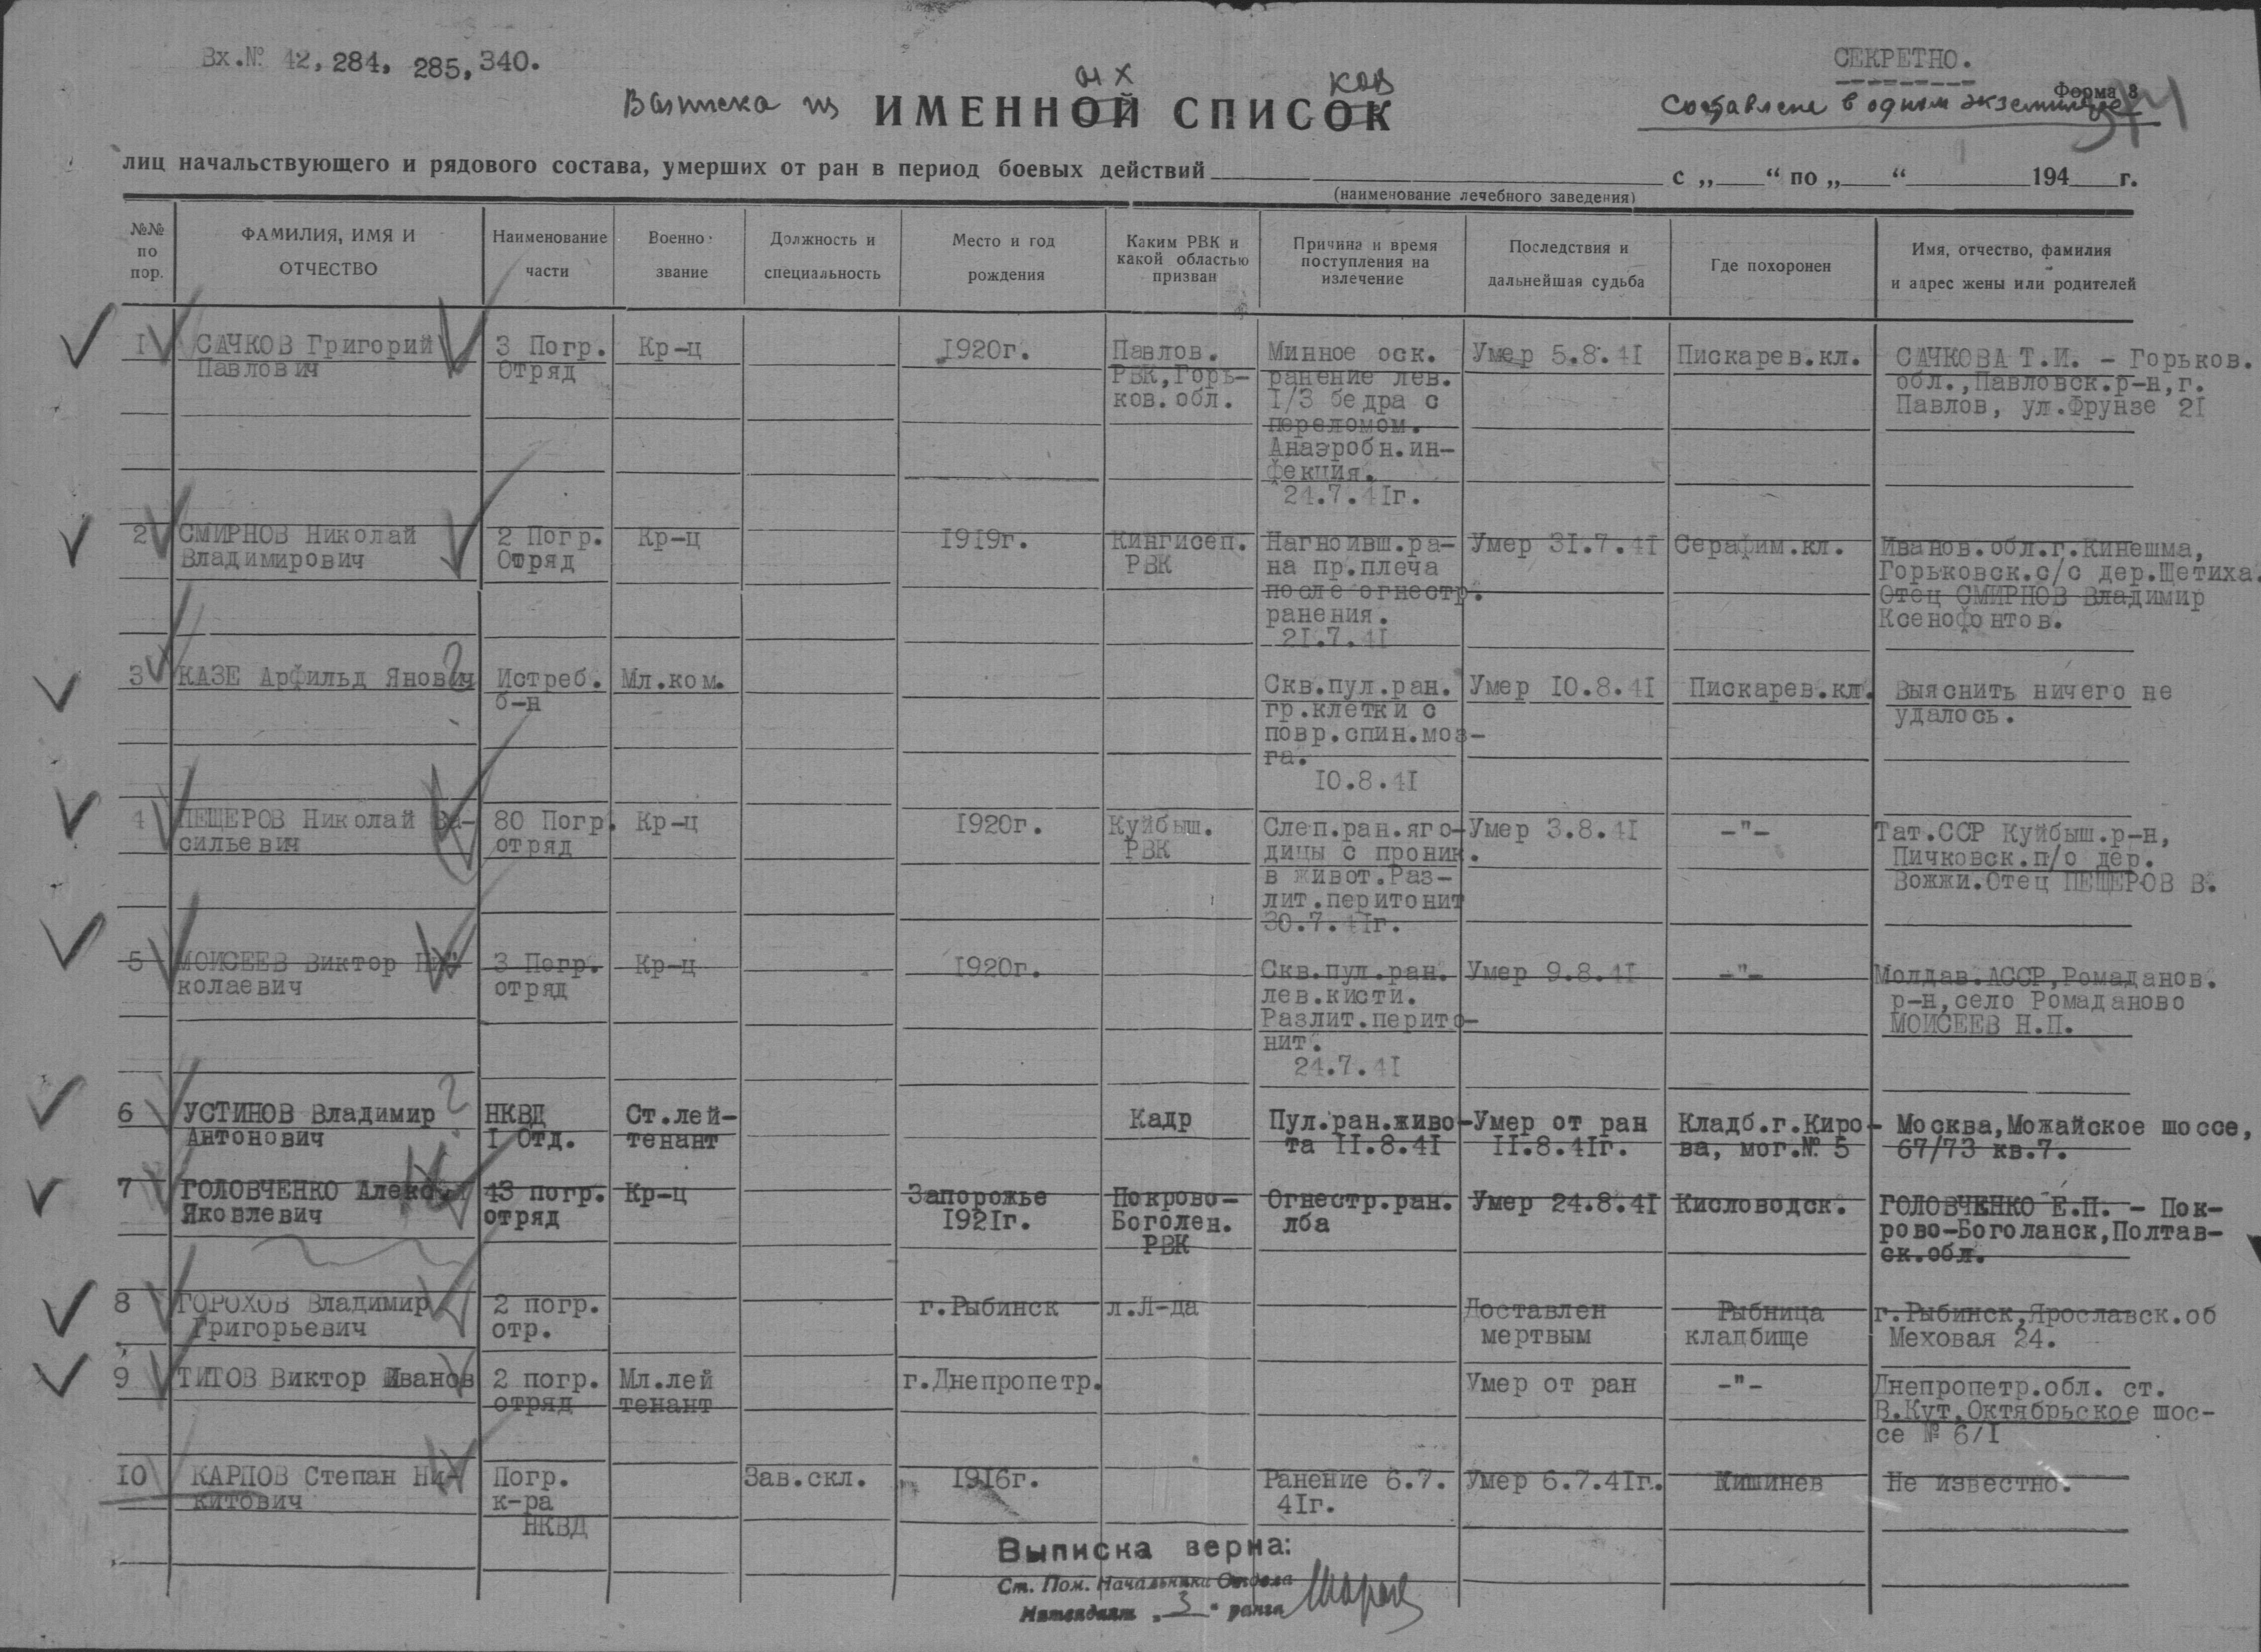 Вх.№ 42, 284, 285, 340.
СЕКРЕТНО.
Форма 8
Составлено в одном экземпляре
Выписка из ИМЕННОЙ СПИСОК
ых
ков
лиц начальствующего и рядового состава, умерших от ран в период боевых действий с „ “ по „ “ 194 г.
(наименование лечебного заведения)
№№ по пор.
ФАМИЛИЯ, ИМЯ И ОТЧЕСТВО
Наименование части
Военно звание
Должность и специальность
Место и год рождения
Каким РВК и какой областью призван
Причина и время поступления на излечение
Последствия и дальнейшая судьба
Где похоронен
Имя, отчество, фамилия и адрес жены или родителей
1 САЧКОВ Григорий 3 Погр. Кр-ц 1920г. Павлов. Минное оск. Умер 5.8.41 Пискарев.кл. САЧКОВА Т.И. - Горьков.
Павлович Отряд РВК,Горь- ранение лев. обл.,Павловск.р-н,г.
ков.обл. I/3 бедра с Павлов, ул.Фрунзе 21
переломом.
Анаэробн.ин-
фекция.
24.7.41г.
2 СМИРНОВ Николай 2 Погр. Кр-ц 1919г. Кингисеп. Нагноивш.ра- Умер 31.7.41 Серафим.кл. Иванов.обл.г.Кинешма,
Владимирович Отряд РВК на пр.плеча Горьковск.с/с дер.Щетиха.
после огнестр. Отец СМИРНОВ Владимир
ранения. Ксенофонтов.
21.7.41
3 КАЗЕ Арфильд Янович Истреб. Мл.ком. Скв.пул.ран. Умер 10.8.41 Пискарев.кл. Выяснить ничего не
б-н гр.клетки с удалось.
повр.спин.моз-
га.
10.8.41
4 ПЕЩЕРОВ Николай Ва- 80 Погр. Кр-ц 1920г. Куйбыш. Слеп.ран.яго- Умер 3.8.41 -"- Тат.ССР Куйбыш.р-н,
сильевич отряд РВК дицы с проник. Пичковск.п/о дер.
в живот.Раз- Вожжи.Отец ПЕЩЕРОВ В.
лит.перитонит
30.7.41г.
5 МОИСЕЕВ Виктор Ни- 3 Погр. Кр-ц 1920г. Скв.пул.ран. Умер 9.8.41 -"- Молдав.АССР,Ромаданов.
колаевич отряд лев.кисти. р-н,село Ромаданово
Разлит.перито- МОИСЕЕВ Н.П.
нит.
24.7.41
6 УСТИНОВ Владимир НКВД Ст.лей- Кадр Пул.ран.живо- Умер от ран Кладб.г.Киро- Москва,Можайское шоссе,
Антонович I Отд. тенант та II.8.41 II.8.41г. ва, мог.№ 5 67/73 кв.7.
7 ГОЛОВЧЕНКО 43 погр. Кр-ц Запорожье Покрово- Огнестр.ран. Умер 24.8.41 Кисловодск. ГОЛОВЧЕНКО Е.П. - Пок-
Яковлевич отряд 1921г. Боголен. лба рово-Боголанск,Полтав-
РВК ск.обл.
8 ГОРОХОВ Владимир 2 погр. г.Рыбинск л.Л-да Доставлен Рыбница г.Рыбинск,Ярославск.об
Григорьевич отр. мертвым кладбище Меховая 24.
9 ТИТОВ Виктор Иванов 2 погр. Мл.лей г.Днепропетр. Умер от ран -"- Днепропетр.обл. ст.
отряд тенант В.Кут.Октябрьское шос-
се № 6/I
10 КАРПОВ Степан Ни- Погр. Зав.скл. 1916г. Ранение 6.7. Умер 6.7.41г. Кишинев Не известно.
китович к-ра 41г.
НКВД
Выписка верна:
Ст. Пом. Начальника Отдела
Интендант „3“ ранга